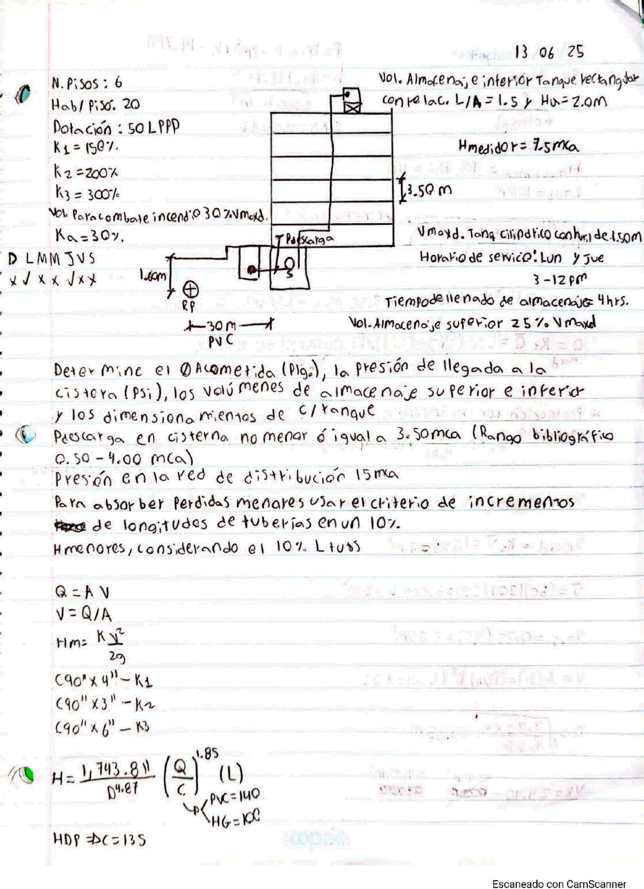 13 06 25
N. Pisos: 6
Hab/Piso: 20
Dotación: 50 LPPD
K1 = 150%
K2 = 200%
K3 = 300%
Vol. Para combate incendio 30% Vmaxd.
Ka = 30%.
Vol. Almacenaje interior Tanque rectangular
con relac. L/A = 1.5 y Hu = 2.0m
Hmedidor = 7.5mca
3.50 m
Pdescarga
S
Vmaxd. Tanq cilíndrico con hutil de 1.50m
Horario de servicio: Lun y Jue
3-12pm
Tiempo de llenado de almacenaje = 4hrs.
Vol. Almacenaje superior 25% Vmaxd
D L M M J V S
x √ x x √ x x
1.00m
RP
30m
PVC
Determine el Ø Acometida (Plg.), la presión de llegada a la
cisterna (Psi), los volúmenes de almacenaje superior e inferior
y los dimensionamientos de c/tanque
Pdescarga en cisterna no menor ó igual a 3.50mca (Rango bibliográfico
0.50 - 4.00 mca)
Presión en la red de distribución 15mca
Para absorber perdidas menores usar el criterio de incrementos
de longitudes de tuberías en un 10%.
Hmenores, considerando el 10% Ltubs
Q = A V
V = Q/A
Hm = K V²/2g
C90° x 4" - K1
C90" x 3" - K2
C90" x 6" - K3
H = 1,743.811/D^4.87 (Q/C)^1.85 (L)
PVC = 140
HG = 100
HDP => C = 135
Escaneado con CamScanner